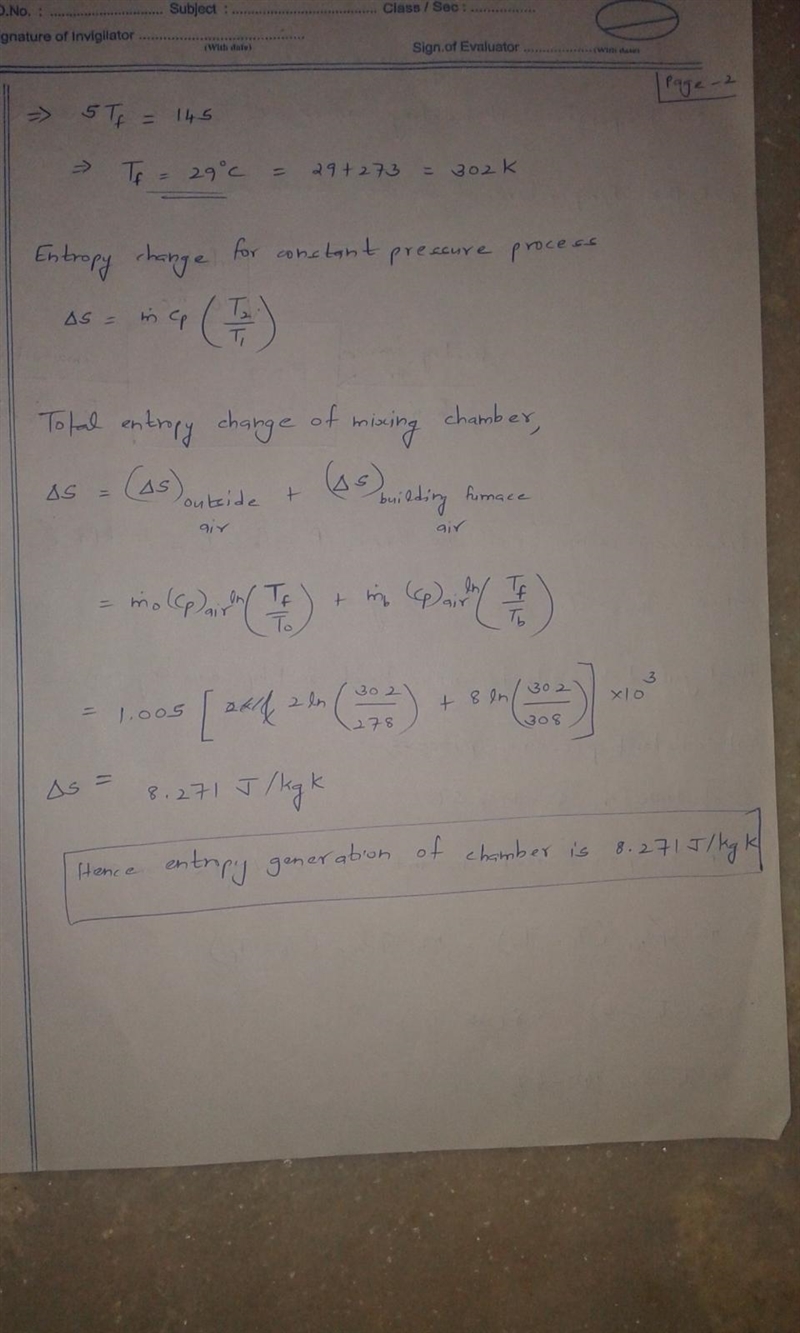 O.No. : ............................ Subject : .................................... Class / Sec : ................
gnature of Invigilator ..........................................
(With date)
Sign.of Evaluator ..................(With date)
Page-2
⇒ 5 Tf = 145
⇒ Tf = 29°C = 29+273 = 302 K
Entropy change for constant pressure process
Δs = ṁ Cp (T2/T1)
Total entropy change of mixing chamber,
Δs = (Δs) outside air + (Δs) building furnace air
= ṁo (Cp)air ln (Tf/To) + ṁb (Cp)air ln (Tf/Tb)
= 1.005 [ 2 ln (302/278) + 8 ln (302/308) ] ×10^3
Δs = 8.271 J/kg K
Hence entropy generation of chamber is 8.271 J/kg K